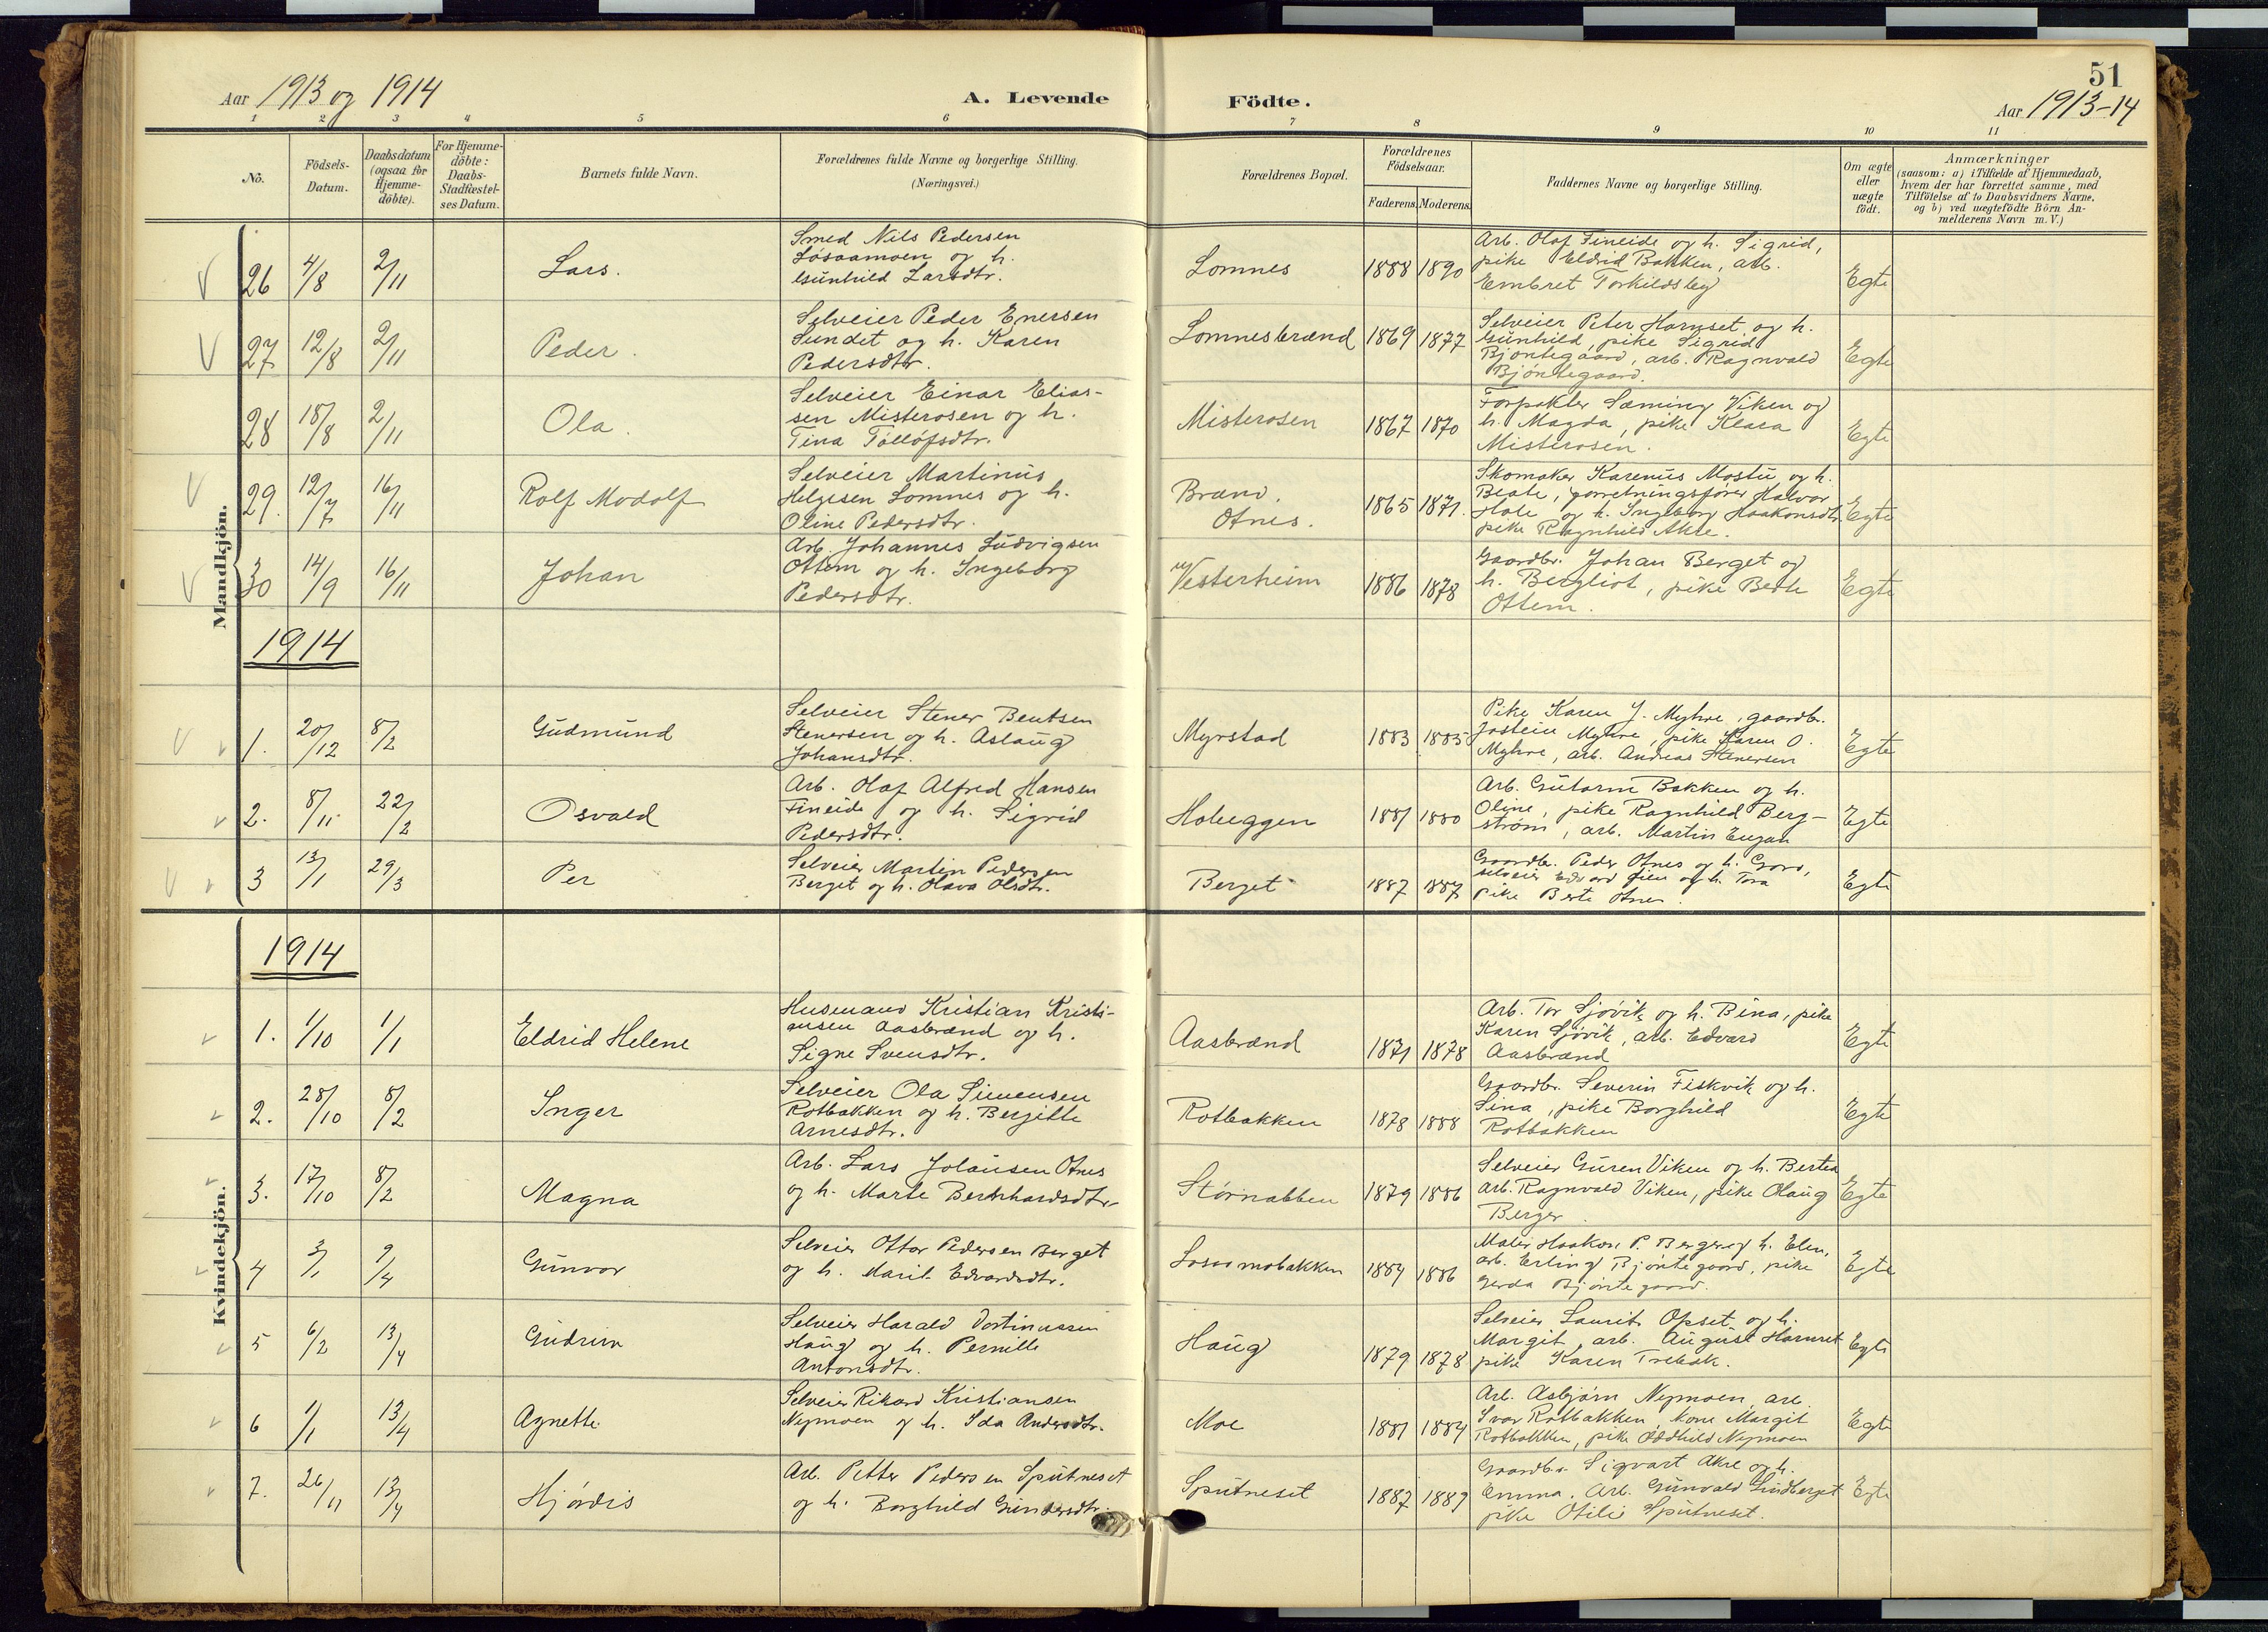 51
Aar 1913 og 1914
A. Levende Födte.
Aar 1913-14
1 2 3 4 5 6 7 8 9 10 11
No.
Födsels-Datum.
Daabsdatum (ogsaa for Hjemme-döbte).
For Hjemme-döbte: Daabs-Stadfæstel-ses Datum.
Barnets fulde Navn.
Forældrenes fulde Navne og borgerlige Stilling. (Næringsvei.)
Forældrenes Bopæl.
Forældrenes Födselsaar.
Faderens. Moderens.
Faddernes Navne og borgerlige Stilling.
Om ægte eller uægte födt.
Anmærkninger
(saasom: a) i Tilfælde af Hjemmedaab,
hvem der har forrettet samme, med
Tilföielse af to Daabsvidners Navne,
og b) ved uægtefödte Börn An-
melderens Navn m. V.)
Mandkjön.
26 4/8 2/11 Lars.
Smed Nils Pedersen
Løsaamoen og h.
Gunhild Larsdtr.
Lomnes 1888 1890
Arb. Olaf Fineide og h. Sigrid,
pike Eldrid Bakken, arb.
Embret Torkildsby
Egte
27 12/8 2/11 Peder.
Selveier Peder Enersen
Sundet og h. Karen
Pedersdtr.
Lomnesbrænd 1869 1877
Selveier Peter Harnset og h.
Gunhild, pike Sigrid
Bjøntegaard, arb. Ragnvald
Bjøntegaard.
Egte
28 18/8 2/11 Ola.
Selveier Einar Elias-
sen Misterosen og h.
Tina Tølløfsdtr.
Misterosen 1867 1870
Forpakter Sæming Viken og
h. Magda, pike Klara
Misterosen.
Egte
29. 12/7 16/11 Rolf Modolf
Selveier Martinus
Helgesen Lomnes og h.
Oline Pedersdtr.
Brænd. Otnes. 1865 1871.
Skomaker Karenus Mostu og h.
Beate, forretningsfører Halvor
Hole og h. Ingeborg Haakonsdtr.
pike Ragnhild Akre.
Egte
30 14/9 16/11 Johan
Arb. Johannes Ludvigsen
Ottem og h. Ingeborg
Pedersdtr.
Vesterheim 1886 1878
Gaardbr. Johan Berget og
h. Bergliot, pike Berte
Ottem.
Egte
1914
1. 20/12 8/2 Gudmund
Selveier Stener Bentsen
Stenersen og h. Aslaug
Johansdtr.
Myrstad 1883 1885
Pike Karen J. Myhre, gaardbr.
Jostein Myhre, pike Karen O.
Myhre, arb. Andreas Stenersen
Egte
2. 8/11 22/2 Osvald
Arb. Olaf Alfred Hansen
Fineide og h. Sigrid
Pedersdtr.
Holueggen 1881 1880
Arb. Gutorm Bakken og h.
Oline, pike Ragnhild Berg-
strøm, arb. Martin Engan
Egte
3 13/1 29/3 Per
Selveier Martin Pedersen
Berget og h. Olava Olsdtr.
Berget 1887 1887
Gaardbr. Peder Otnes og h. Goro,
selveier Edvard Lien og h. Tora
pike Berte Otnes.
Egte
Kvindekjön.
1914
1. 1/10 1/1 Eldrid Helene
Husmand Kristian Kristi-
ansen Aasbrænd og h.
Signe Svensdtr.
Aasbrænd 1871 1878
Arb. Tor Sjøvik og h. Bina, pike
Karen Sjøvik, arb. Edvard
Aasbrænd
Egte
2. 28/10 8/2 Inger
Selveier Ola Simensen
Rotbakken og h. Bergitte
Arnesdtr.
Rotbakken 1878 1888
Gaardbr. Severin Fiskvik og h.
Sina, pike Borghild
Rotbakken
Egte
3. 17/10 8/2 Magna
Arb. Lars Jolausen Otnes
og h. Marte Bernhardsdtr.
Størnabben 1879 1886
Selveier Guren Viken og h. Bertea
arb. Ragnvald Viken, pike Olaug
Berger.
Egte
4 3/1 9/4 Gunvor
Selveier Ottar Pedersen Berget
og h. Marit Edvardsdtr.
Løsaamobakken 1884 1886
Maler Haakon P. Berger og h. Elen,
arb. Erling Bjøntegaard, pike
Gerda Bjøntegaard.
Egte
5 6/2 13/4 Gudrun
Selveier Harald Dortinussen
Haug og h. Pernille
Antonsdtr.
Haug 1879 1878
Selveier Laurits Opset og h.
Margit, arb. August Harnset
pike Karen Trebak.
Egte
6 1/1 13/4 Agnette
Selveier Rikard Kristiansen
Nymoen og h. Ida Andersdtr.
Moe 1881 1884
Arb. Asbjørn Nymoen, arb.
Ivar Rotbakken, kone Margit
Rotbakken, pike Oddhild Nymoen
Egte
7. 26/11 13/4 Hjørdis
Arb. Petter Pedersen Sputneset
og h. Borghild Gundersdtr.
Sputneset 1887 1889
Gaardbr. Sigvart Akre og h.
Emma. Arb. Gunvald Lindberget
pike Otilie Sputneset.
Egte